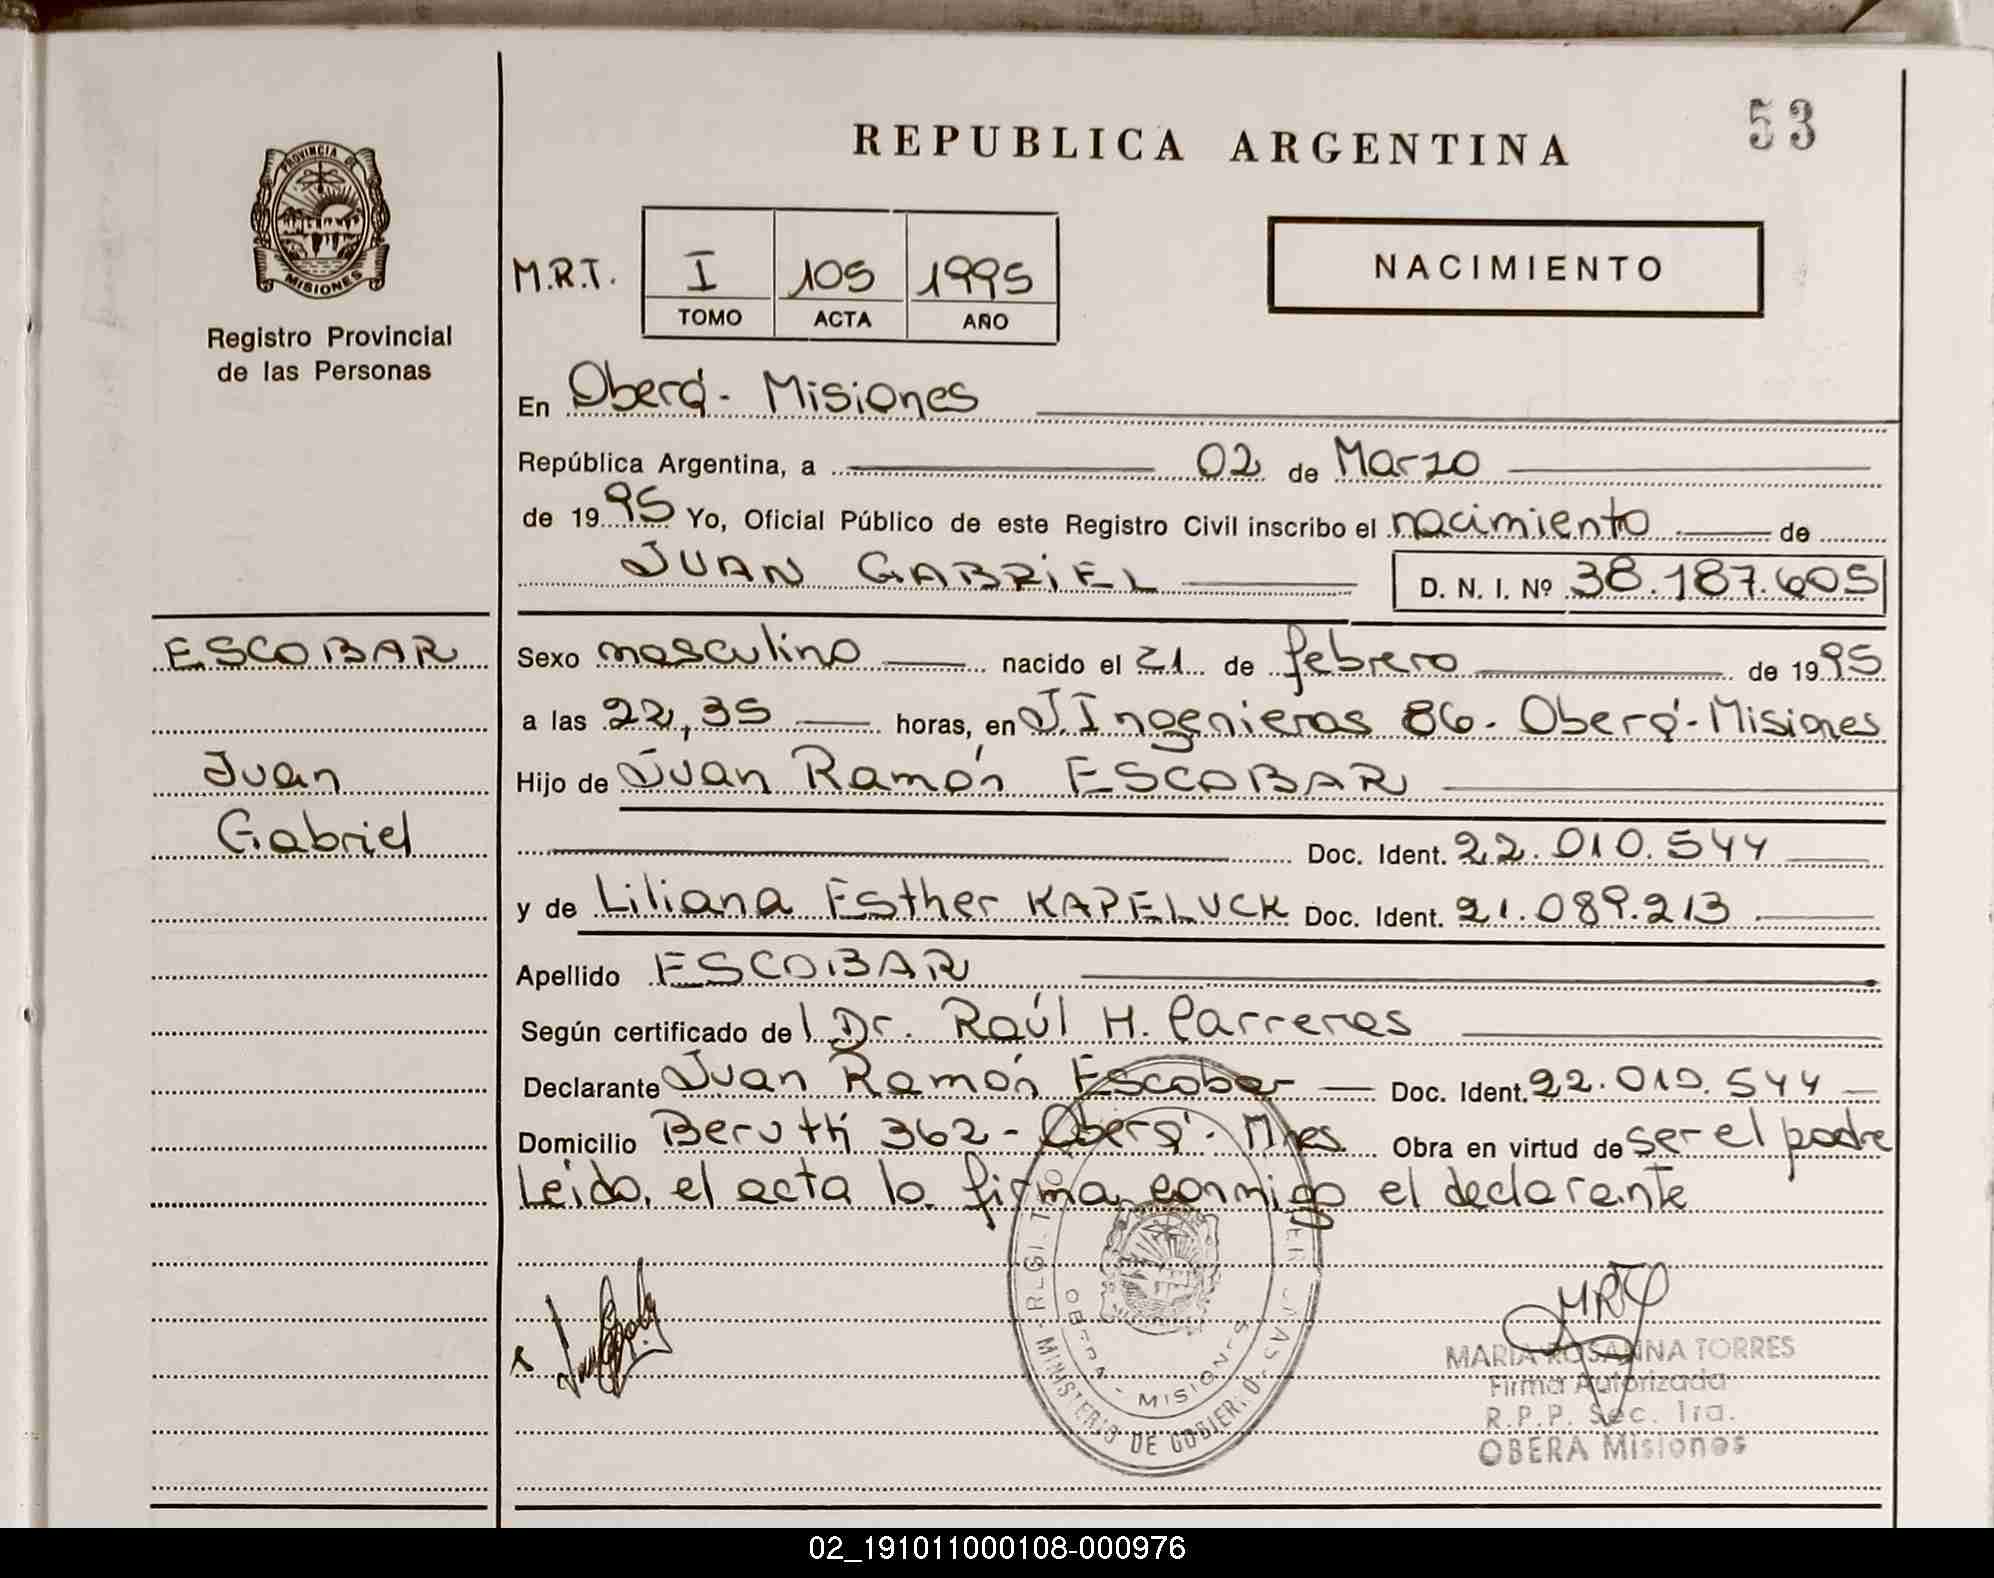 53
REPUBLICA ARGENTINA
PROVINCIA DE MISIONES
Registro Provincial
de las Personas
M.R.T. I 105 1995
TOMO ACTA AÑO
NACIMIENTO
En Oberá - Misiones
República Argentina, a 02 de Marzo
de 1995 Yo, Oficial Público de este Registro Civil inscribo el nacimiento de
JUAN GABRIEL D. N. I. Nº 38.187.605
ESCOBAR
Juan
Gabriel
Sexo masculino nacido el 21 de febrero de 1995
a las 22,35 horas, en J. Ingenieros 86 - Oberá - Misiones
Hijo de Juan Ramón ESCOBAR
Doc. Ident. 22.010.544
y de Liliana Esther KAPELUCK Doc. Ident. 21.089.213
Apellido ESCOBAR
Según certificado del Dr. Raúl H. Carreras
Declarante Juan Ramón Escobar Doc. Ident. 22.010.544
Domicilio Beruti 362 - Oberá - Mnes. Obra en virtud de ser el padre
Leida el acta la firma conmigo el declarante
MINISTERIO DE GOBIERNO
OBERA - MISIONES
MARIA ROSANNA TORRES
Firma Autorizada
R.P.P. Sec. 1ra.
OBERA Misiones
02_191011000108-000976